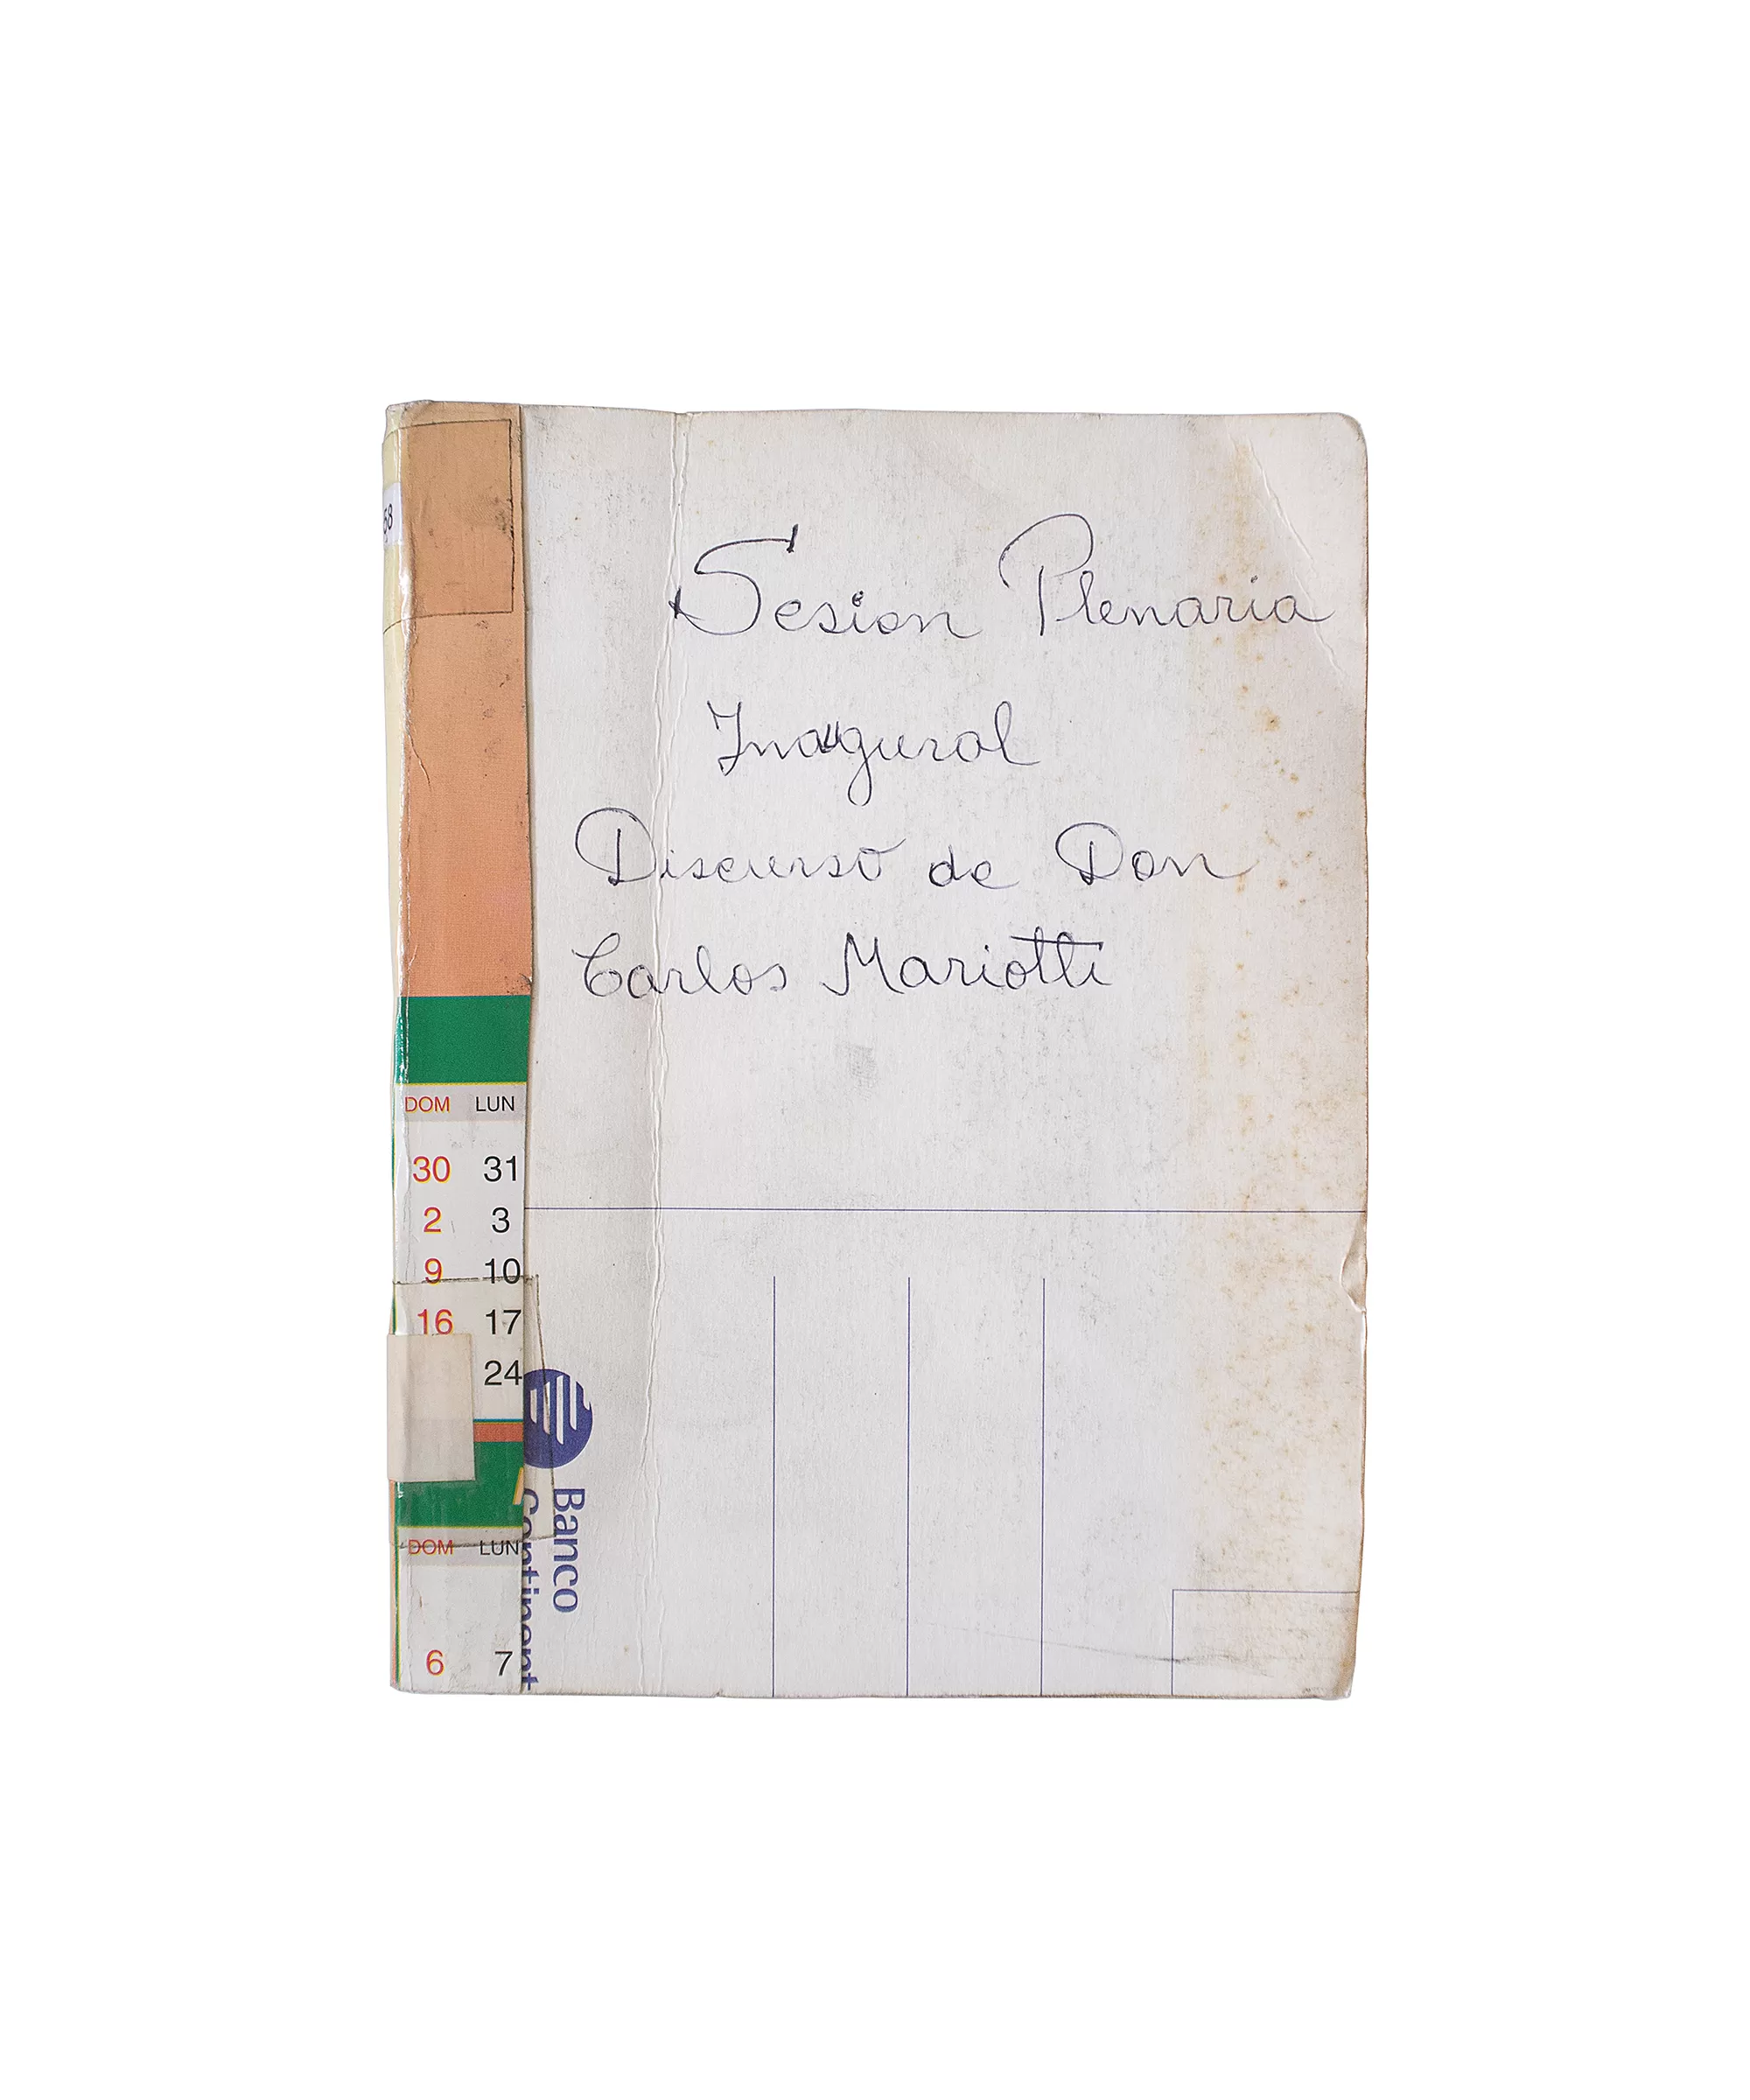 Sesion Plenaria
Inaugural
Discurso de Don
Carlos Mariotti
DOM LUN
30 31
2 3
9 10
16 17
24
DOM LUN
6 7
Banco
Continent